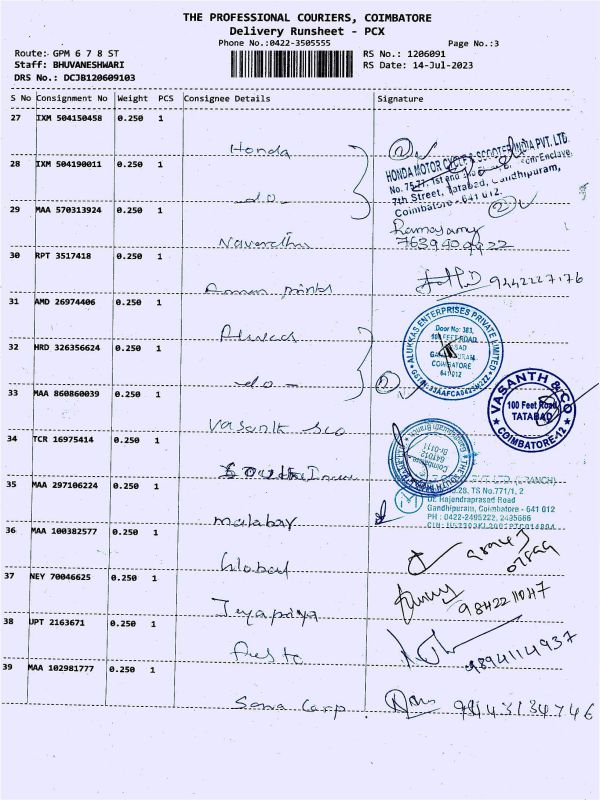 THE PROFESSIONAL COURIERS, COIMBATORE
Delivery Runsheet - PCX
Phone No.:0422-3505555
Page No.:3
Route: GPM 6 7 8 ST
RS No.: 1206091
Staff: BHUVANESHWARI
RS Date: 14-Jul-2023
DRS No.: DCJB120609103
S No Consignment No Weight PCS Consignee Details Signature
27 IXM 504150458 0.250 1
Honda
HONDA MOTOR CYCLE & SCOOTER INDIA PVT. LTD.
28 IXM 504190011 0.250 1
7th Street, Tatabad, Gandhipuram,
Coimbatore - 641 012.
do
29 MAA 570313924 0.250 1
Ramasamy
Navarathna
30 RPT 3517418 0.250 1
9442227176
Amman prints
31 AMD 26974406 0.250 1
ALUKKAS ENTERPRISES PRIVATE LIMITED
Door No: 383,
100 FEET ROAD
COIMBATORE
641 012
Alukkas
32 HRD 326356624 0.250 1
do
33 MAA 860860039 0.250 1
VASANTH & CO
100 Feet Road
TATABAD
COIMBATORE-12
Vasanth & co
34 TCR 16975414 0.250 1
South Indian
TS No.771/1, 2
Dr. Rajendraprasad Road
Gandhipuram, Coimbatore - 641 012
PH : 0422-2495222, 2495666
35 MAA 297106224 0.250 1
malabar
36 MAA 100382577 0.250 1
Global
37 NEY 70046625 0.250 1
9842211047
Jeyapriya
38 UPT 2163671 0.250 1
9894114937
39 MAA 102981777 0.250 1
Sona Corp.
9843134746